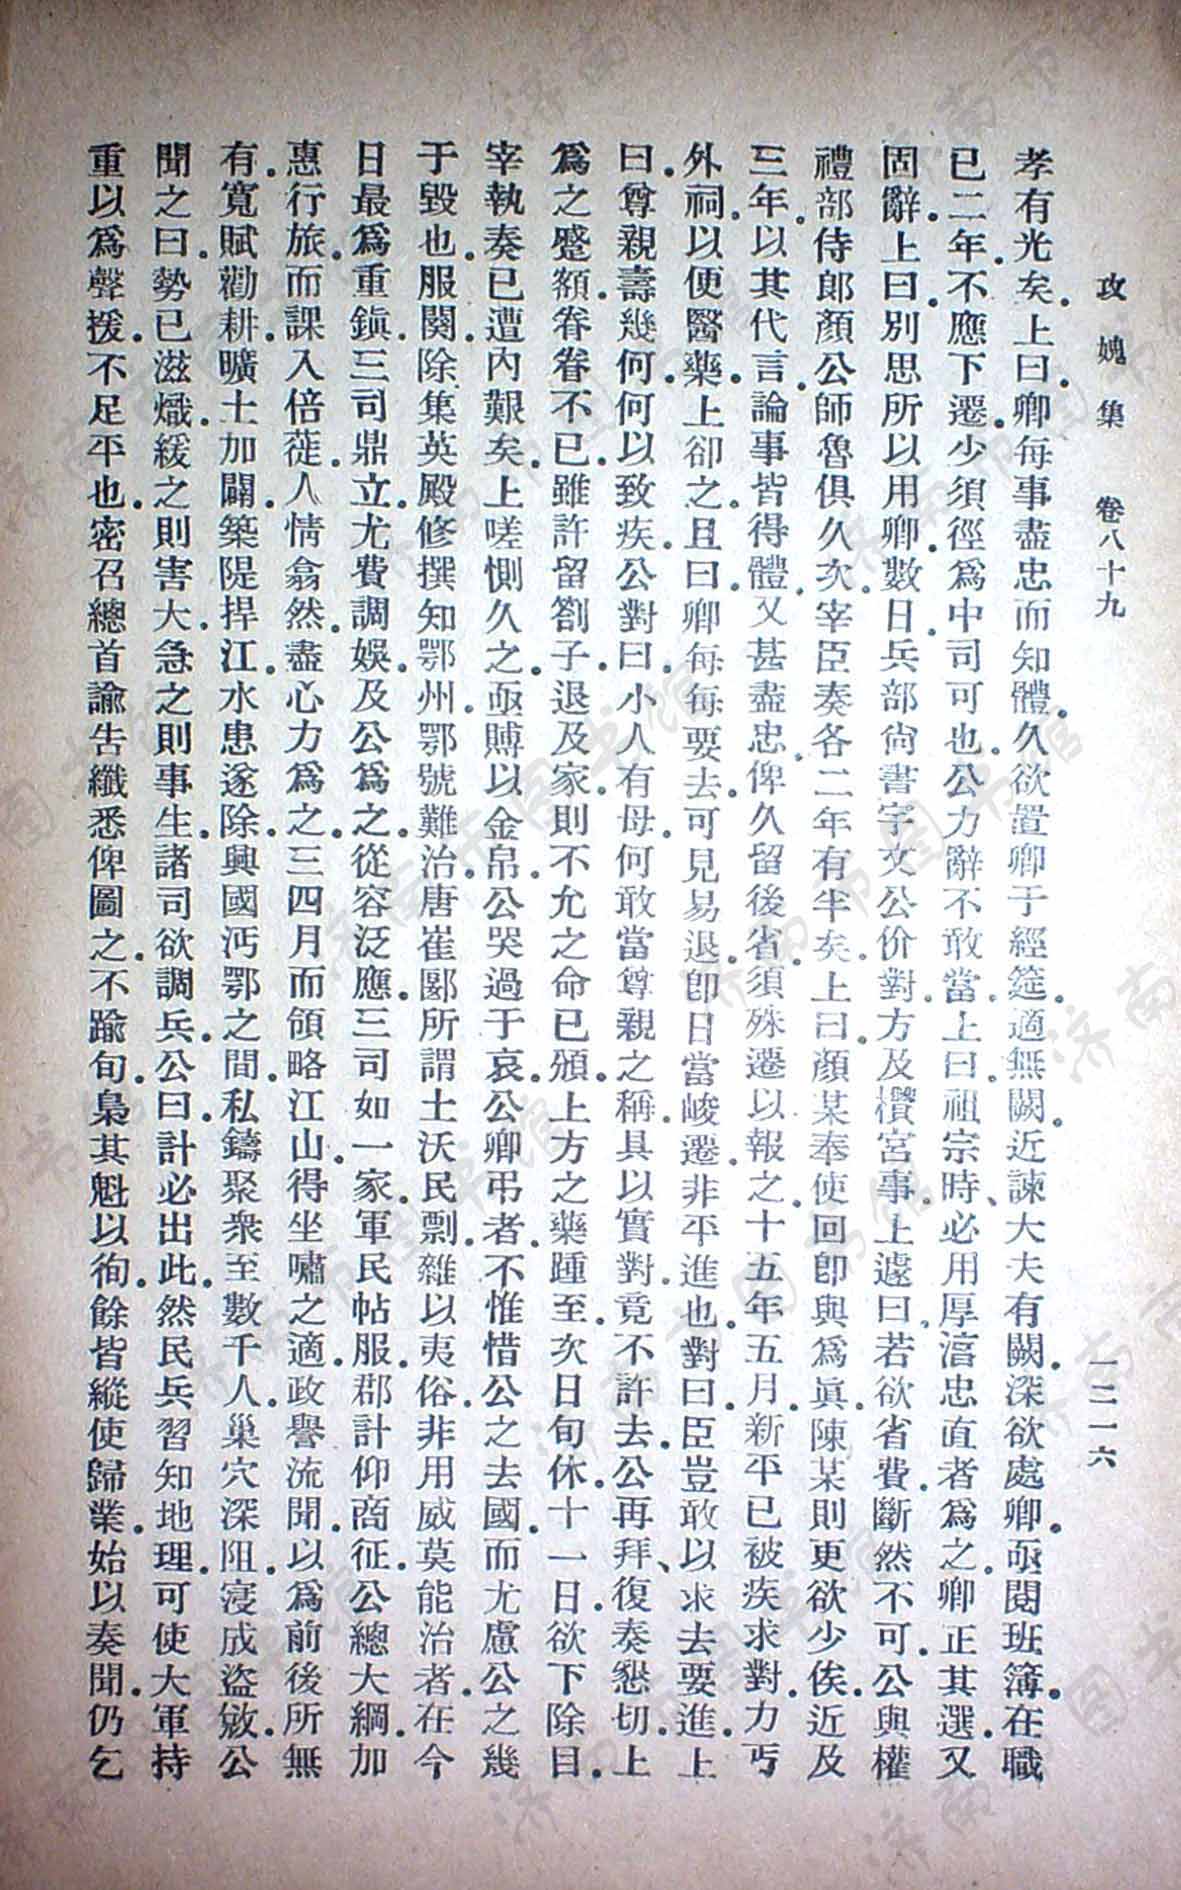 攻媿集 卷八十九 一二一六
孝有光矣。上曰。卿每事盡忠而知體。久欲置卿于經筵。適無闕。近諫大夫有闕。深欲處卿。亟閱班簿。在職
已二年。不應下遷。少須徑爲中司可也。公力辭不敢當。上曰。祖宗時、必用厚濇忠直者爲之。卿正其選。又
固辭。上曰。別思所以用卿。數日。兵部尙書宇文公价對。方及欑宮事。上遽曰。若欲省費。斷然不可。公與權
禮部侍郎顏公師魯俱久次。宰臣奏各二年有半矣。上曰。顏某奉使回。卽與爲眞。陳某則更欲少俟。近及
三年。以其代言。論事皆得體。又甚盡忠。俾久留後省。須殊遷以報之。十五年五月。新平已被疾求對。力丐
外祠。以便醫藥。上卻之。且曰。卿每每要去。可見易退。卽日當峻遷。非平進也。對曰。臣豈敢以求去要進。上
曰。尊親壽幾何。何以致疾。公對曰。小人有母。何敢當尊親之稱。具以實對。竟不許去。公再拜、復奏懇切。上
爲之蹙額。眷眷不已。雖許留劄子。退及家。則不允之命已頒。上方之藥踵至。次日旬休。十一日。欲下除目。
宰執奏已遭內艱矣。上嗟惻久之。亟賻以金帛。公哭過于哀。公卿弔者。不惟惜公之去國。而尤慮公之幾
于毀也。服闋。除集英殿修撰知鄂州。鄂號難治。唐崔郾所謂土沃民剽。雜以夷俗。非用威莫能治者。在今
日最爲重鎭。三司鼎立。尤費調娛。及公爲之。從容泛應。三司如一家。軍民帖服。郡計仰商征。公總大綱。加
惠行旅。而課入倍蓰。人情翕然。盡心力爲之。三四月而頜略江山。得坐嘯之適。政譽流聞。以爲前後所無
有。寬賦勸耕。曠土加闢。築隄捍江。水患遂除。興國沔鄂之間。私鑄聚衆至數千人。巢穴深阻。寖成盜敚。公
聞之曰。勢已滋熾。緩之則害大。急之則事生。諸司欲調兵。公曰。計必出此。然民兵習知地理。可使大軍持
重以爲聲援。不足平也。密召總首諭告纖悉。俾圖之。不踰旬。梟其魁以徇。餘皆縱使歸業。始以奏聞。仍乞